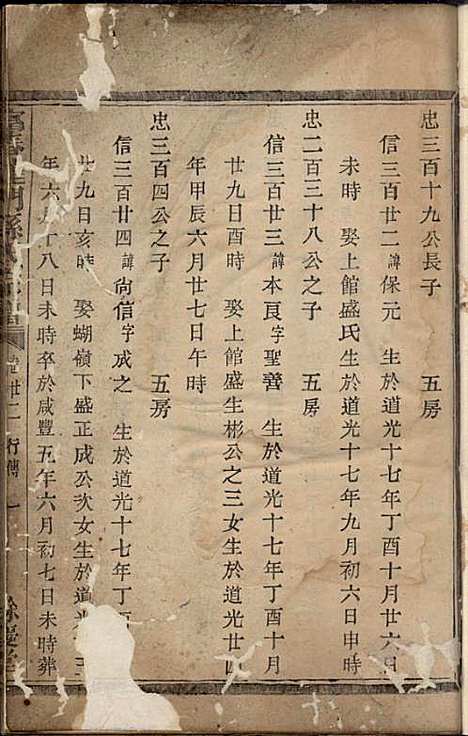 忠三百十九公長子　五房
信三百廿二諱保元　生於道光十七年丁酉十月廿六日
未時　娶上館盛氏生於道光十七年九月初六日申時
忠二百三十八公之子　五房
信三百廿三諱本良字聖善　生於道光十七年丁酉十月
廿九日酉時　娶上館盛生彬公之三女生於道光廿四
年甲辰六月廿七日午時
忠三百四公之子　五房
信三百廿四諱尙信字成之　生於道光十七年丁
廿九日亥時　娶蝴嶺下盛正成公次女生於道
年六月十八日未時卒於咸豐五年六月初七日未時葬
卷廿二　行傳　一